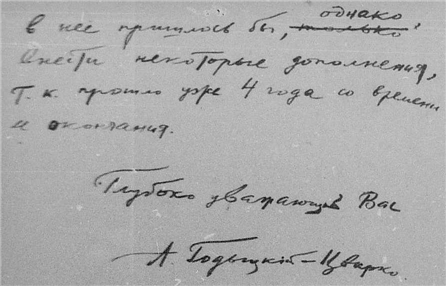 однако,
в нее пришлось бы, только
внести некоторые дополнения,
т.к. прошло уже 4 года со времени
и окончания.
Глубоко уважающий Вас
А. Годыцкий-Цвирко.